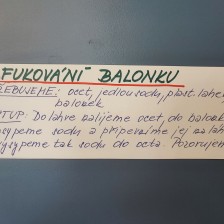 FUKOVÁNÍ BALONKU
ŘEBUJEME: ocet, jedlou sodu, plast. lahe
balonek
TUP: Do lahve nalijeme ocet, do balonk
sypeme sodu a připevníme jej na lah
ysypeme tak sodu do octa. Pozorujem